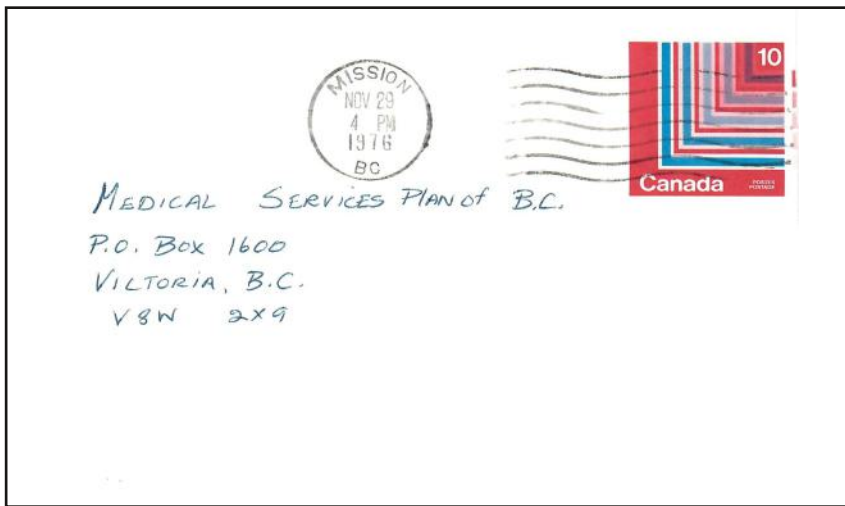 MISSION
NOV 29
4 PM
1976
BC
10
Canada
POSTES
POSTAGE
MEDICAL SERVICES PLAN of B.C.
P.O. Box 1600
VICTORIA, B.C.
V8W 2X9